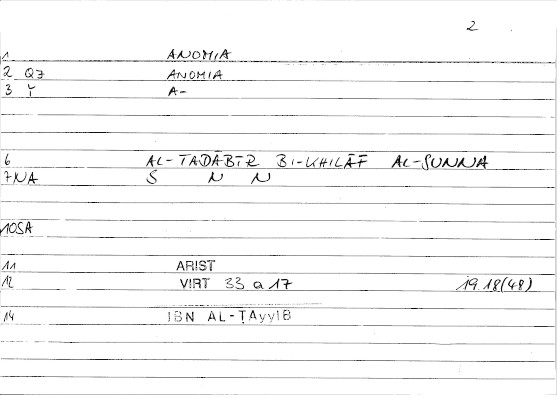 2
1 ANOMIA
2 Q7 ANOMIA
3 Ỹ A-
6 AL-TADĀBĪR BI-KHILĀF AL-SUNNA
7NA S N N
10SA
11 ARIST
12 VIRT 33 a 17 19.18(48)
14 IBN AL-ṬAyyIB